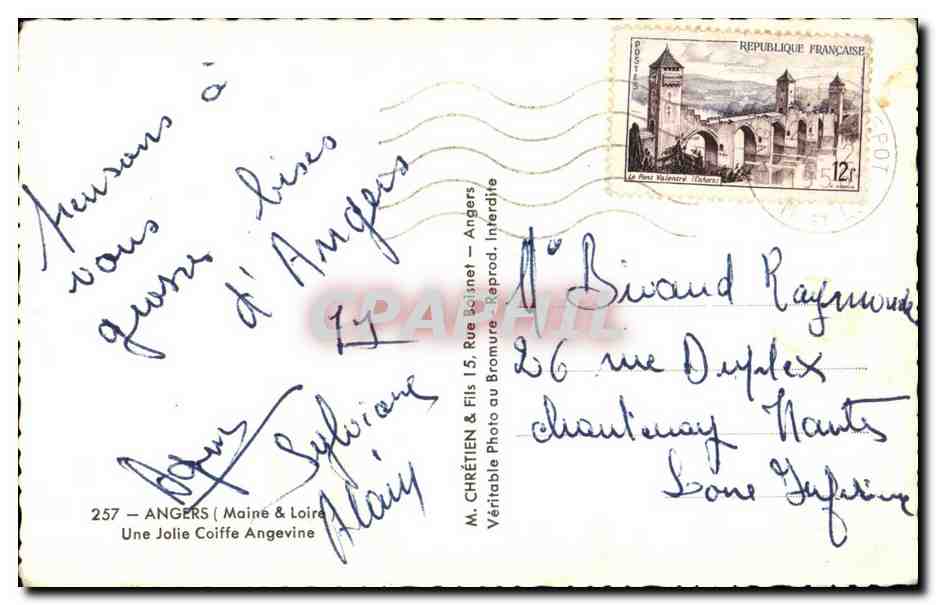 pensons à
vous
grosses bises
d'Angers
Sylviane
Alain
257 — ANGERS ( Maine & Loire )
Une Jolie Coiffe Angevine
M. CHRÉTIEN & Fils 15, Rue Boisnet — Angers
Véritable Photo au Bromure - Reprod. Interdite
POSTES
REPUBLIQUE FRANÇAISE
Le Pont Valentré (Cahors)
12f
CPAPHIL
Raymonde
26 rue Duplex
Chantenay Nantes
Loire Inférieure